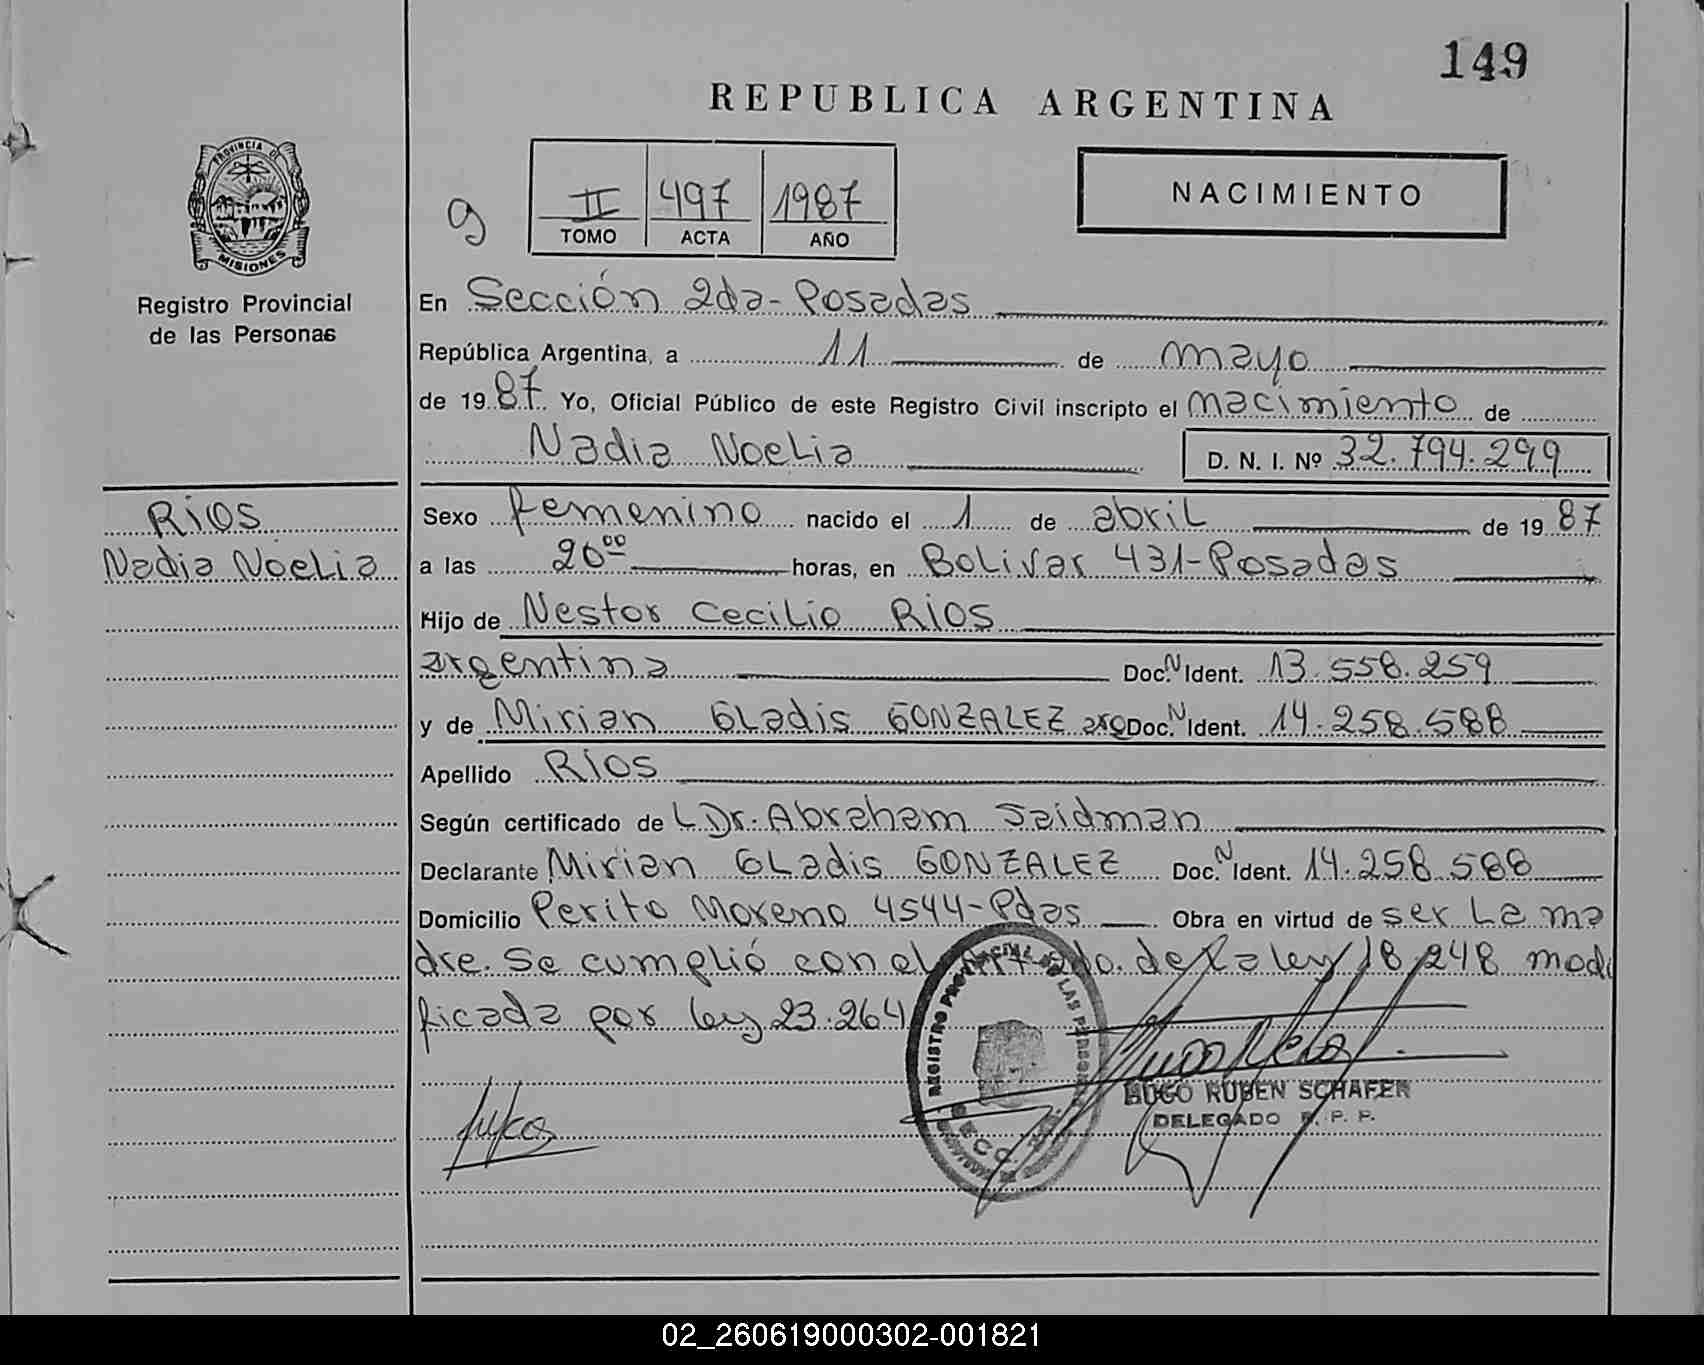 149
REPUBLICA ARGENTINA
PROVINCIA DE
MISIONES
Registro Provincial
de las Personas
9
II 497 1987
TOMO ACTA AÑO
NACIMIENTO
En Sección 2da-Posadas
República Argentina, a 11 de mayo
de 1987 Yo, Oficial Público de este Registro Civil inscripto el nacimiento de
Nadia Noelia D. N. I. Nº 32.794.299
RIOS
Nadia Noelia
Sexo femenino nacido el 1 de abril de 1987
a las 20⁰⁰ horas, en Bolivar 431-Posadas
Hijo de Nestor Cecilio RIOS
argentina Doc. N Ident. 13.558.259
y de Mirian Gladis GONZALEZ arg Doc. N Ident. 14.258.588
Apellido RIOS
Según certificado de L Dr. Abraham Saidman
Declarante Mirian Gladis GONZALEZ Doc. N Ident. 14.258.588
Domicilio Perito Moreno 4544-Pdas Obra en virtud de ser la ma
dre. Se cumplió con el do. de la ley 18.248 modi
ficada por ley 23.264
REGISTRO PROVINCIAL DE LAS PERSONAS
SECC.
HUGO RUBEN SCHAFER
DELEGADO R. P. P.
02_260619000302-001821